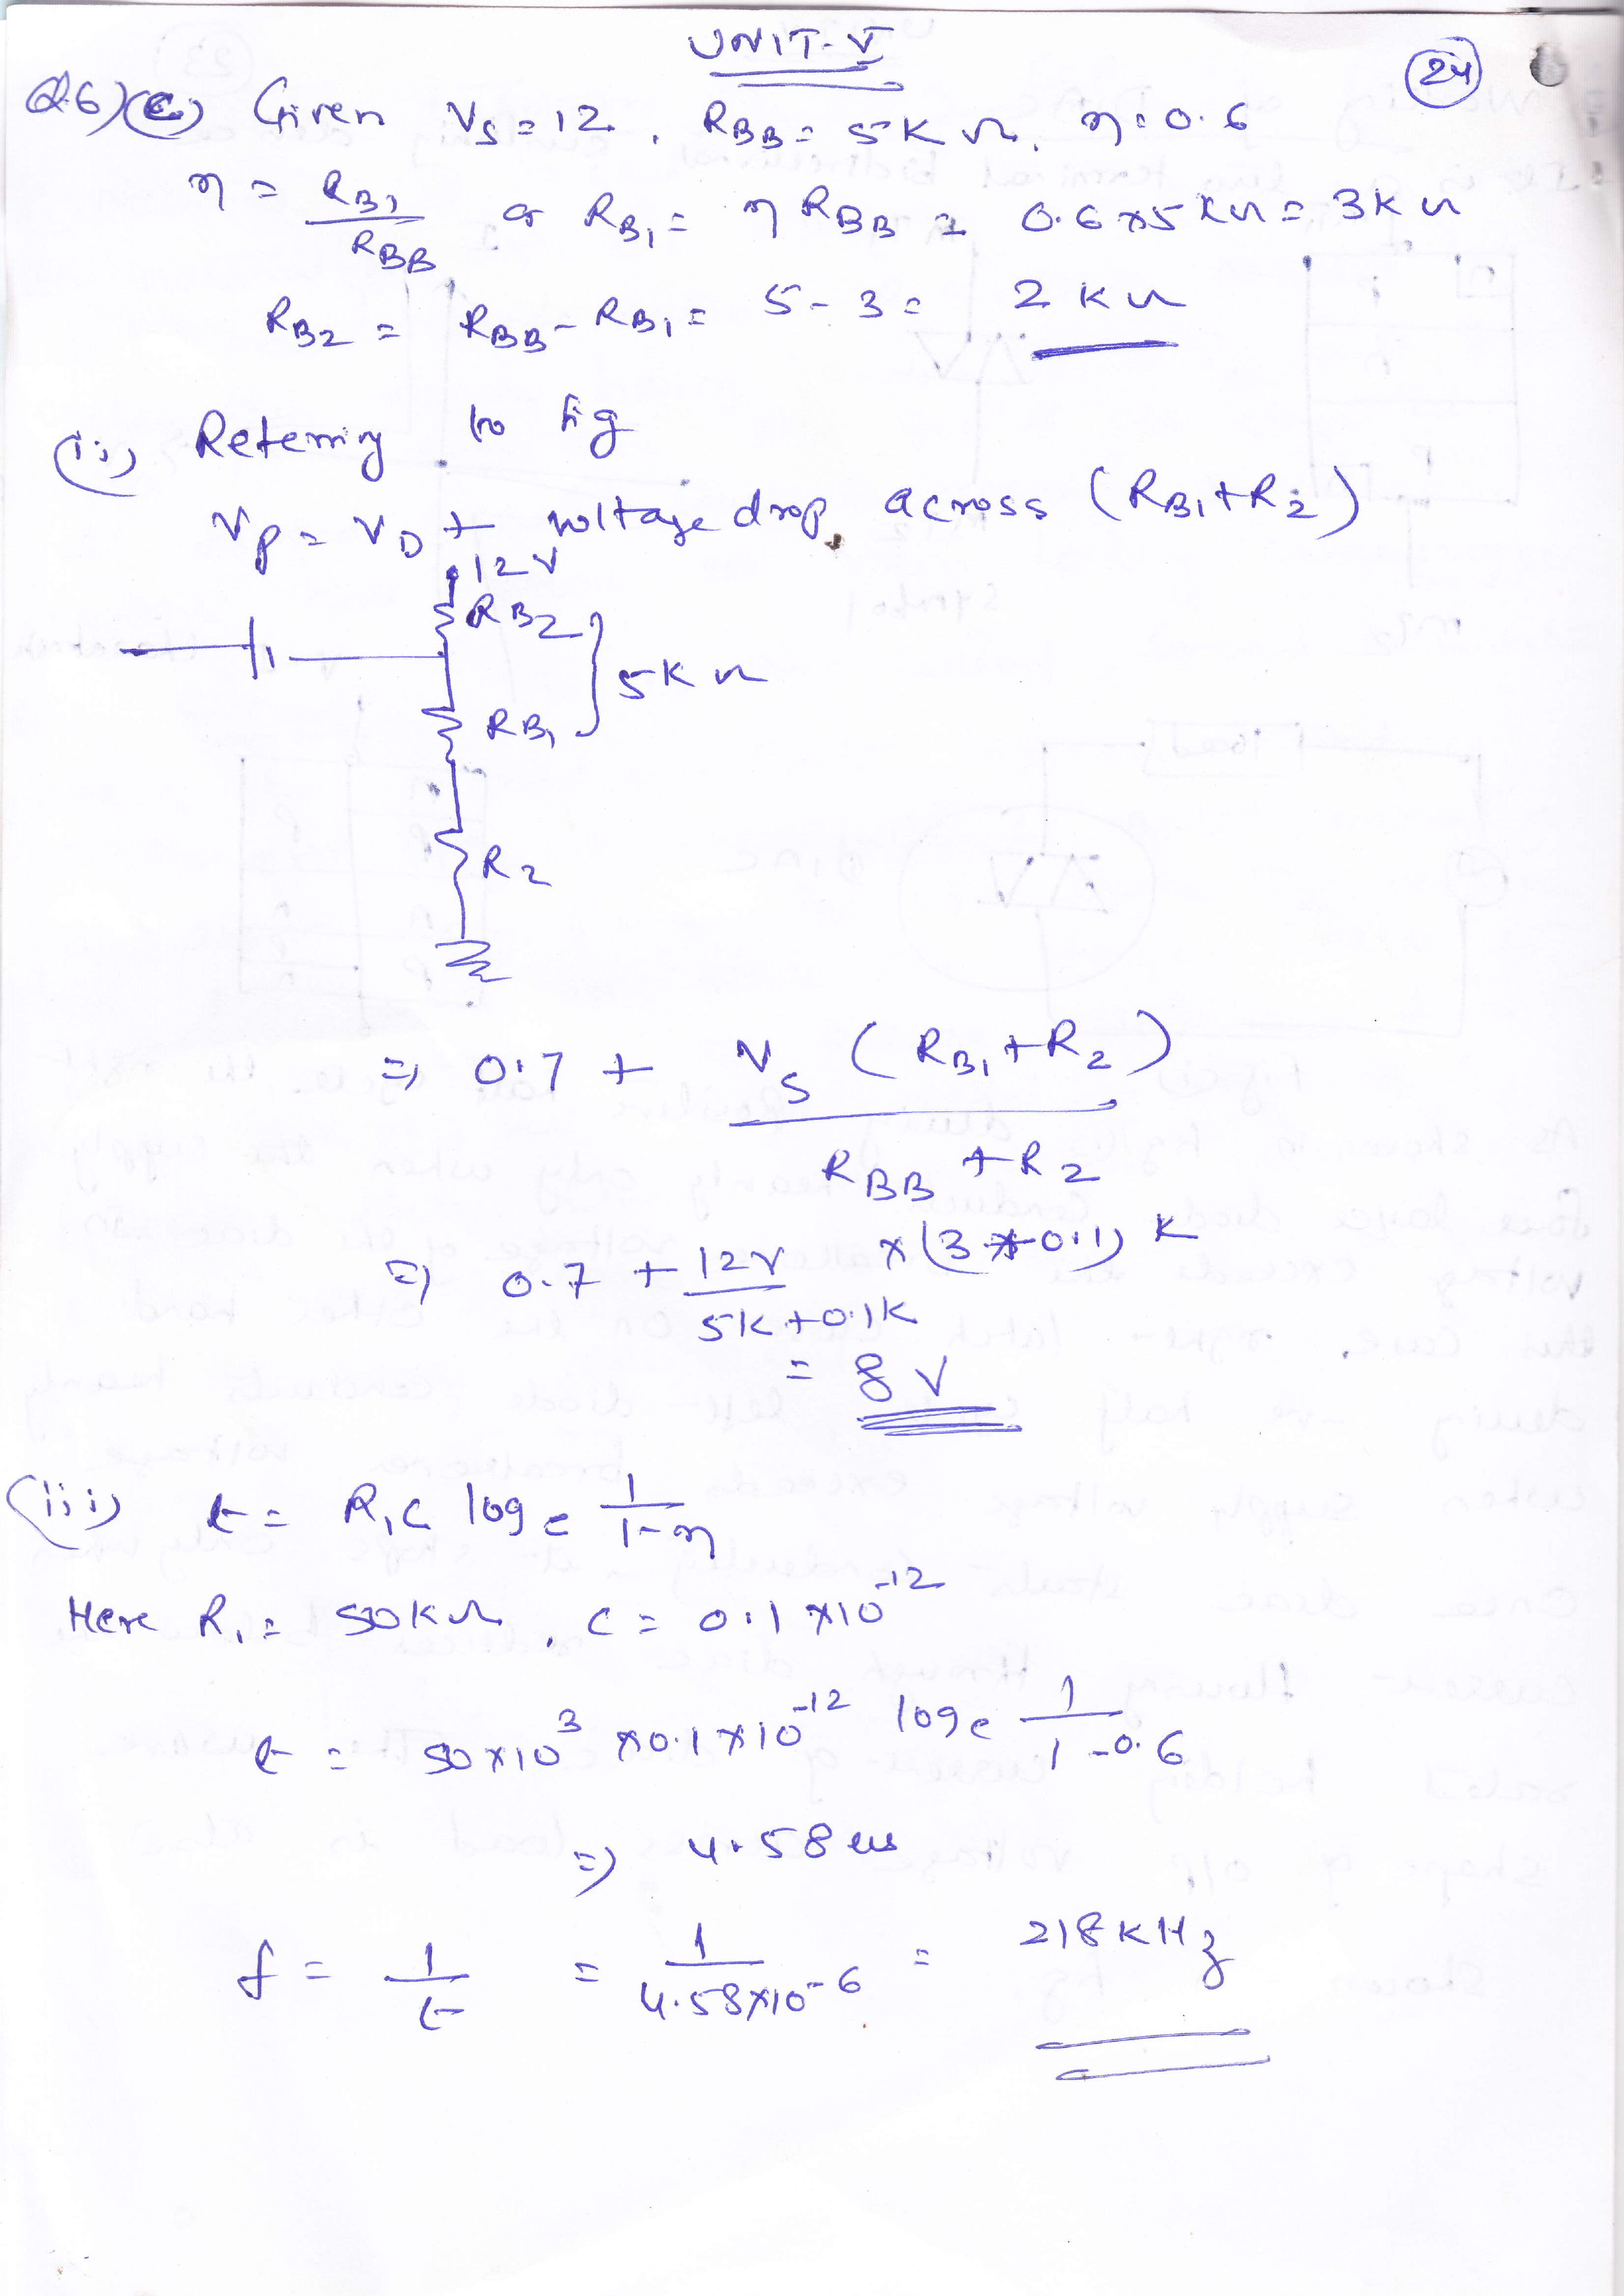 UNIT-V
24
Q.6) (c) Given VS = 12, RBB = 5KΩ, η = 0.6
η = RB1/RBB or RB1 = η RBB = 0.6 x 5 KΩ = 3KΩ
RB2 = RBB - RB1 = 5 - 3 = 2 KΩ
(ii) Referring to fig
VP = VD + voltage drop across (RB1 + R2)
12V
RB2
5KΩ
RB1
R2
=> 0.7 + VS (RB1 + R2) / RBB + R2
=> 0.7 + 12V / 5K + 0.1K x (3 + 0.1) K
= 8 V
(iii) t = R1C loge 1/1-η
Here R1 = 50KΩ, C = 0.1 x 10^-12
t = 50 x 10^3 x 0.1 x 10^-12 loge 1/1-0.6
=> 4.58 us
f = 1/t = 1/4.58x10^-6 = 218 KHz